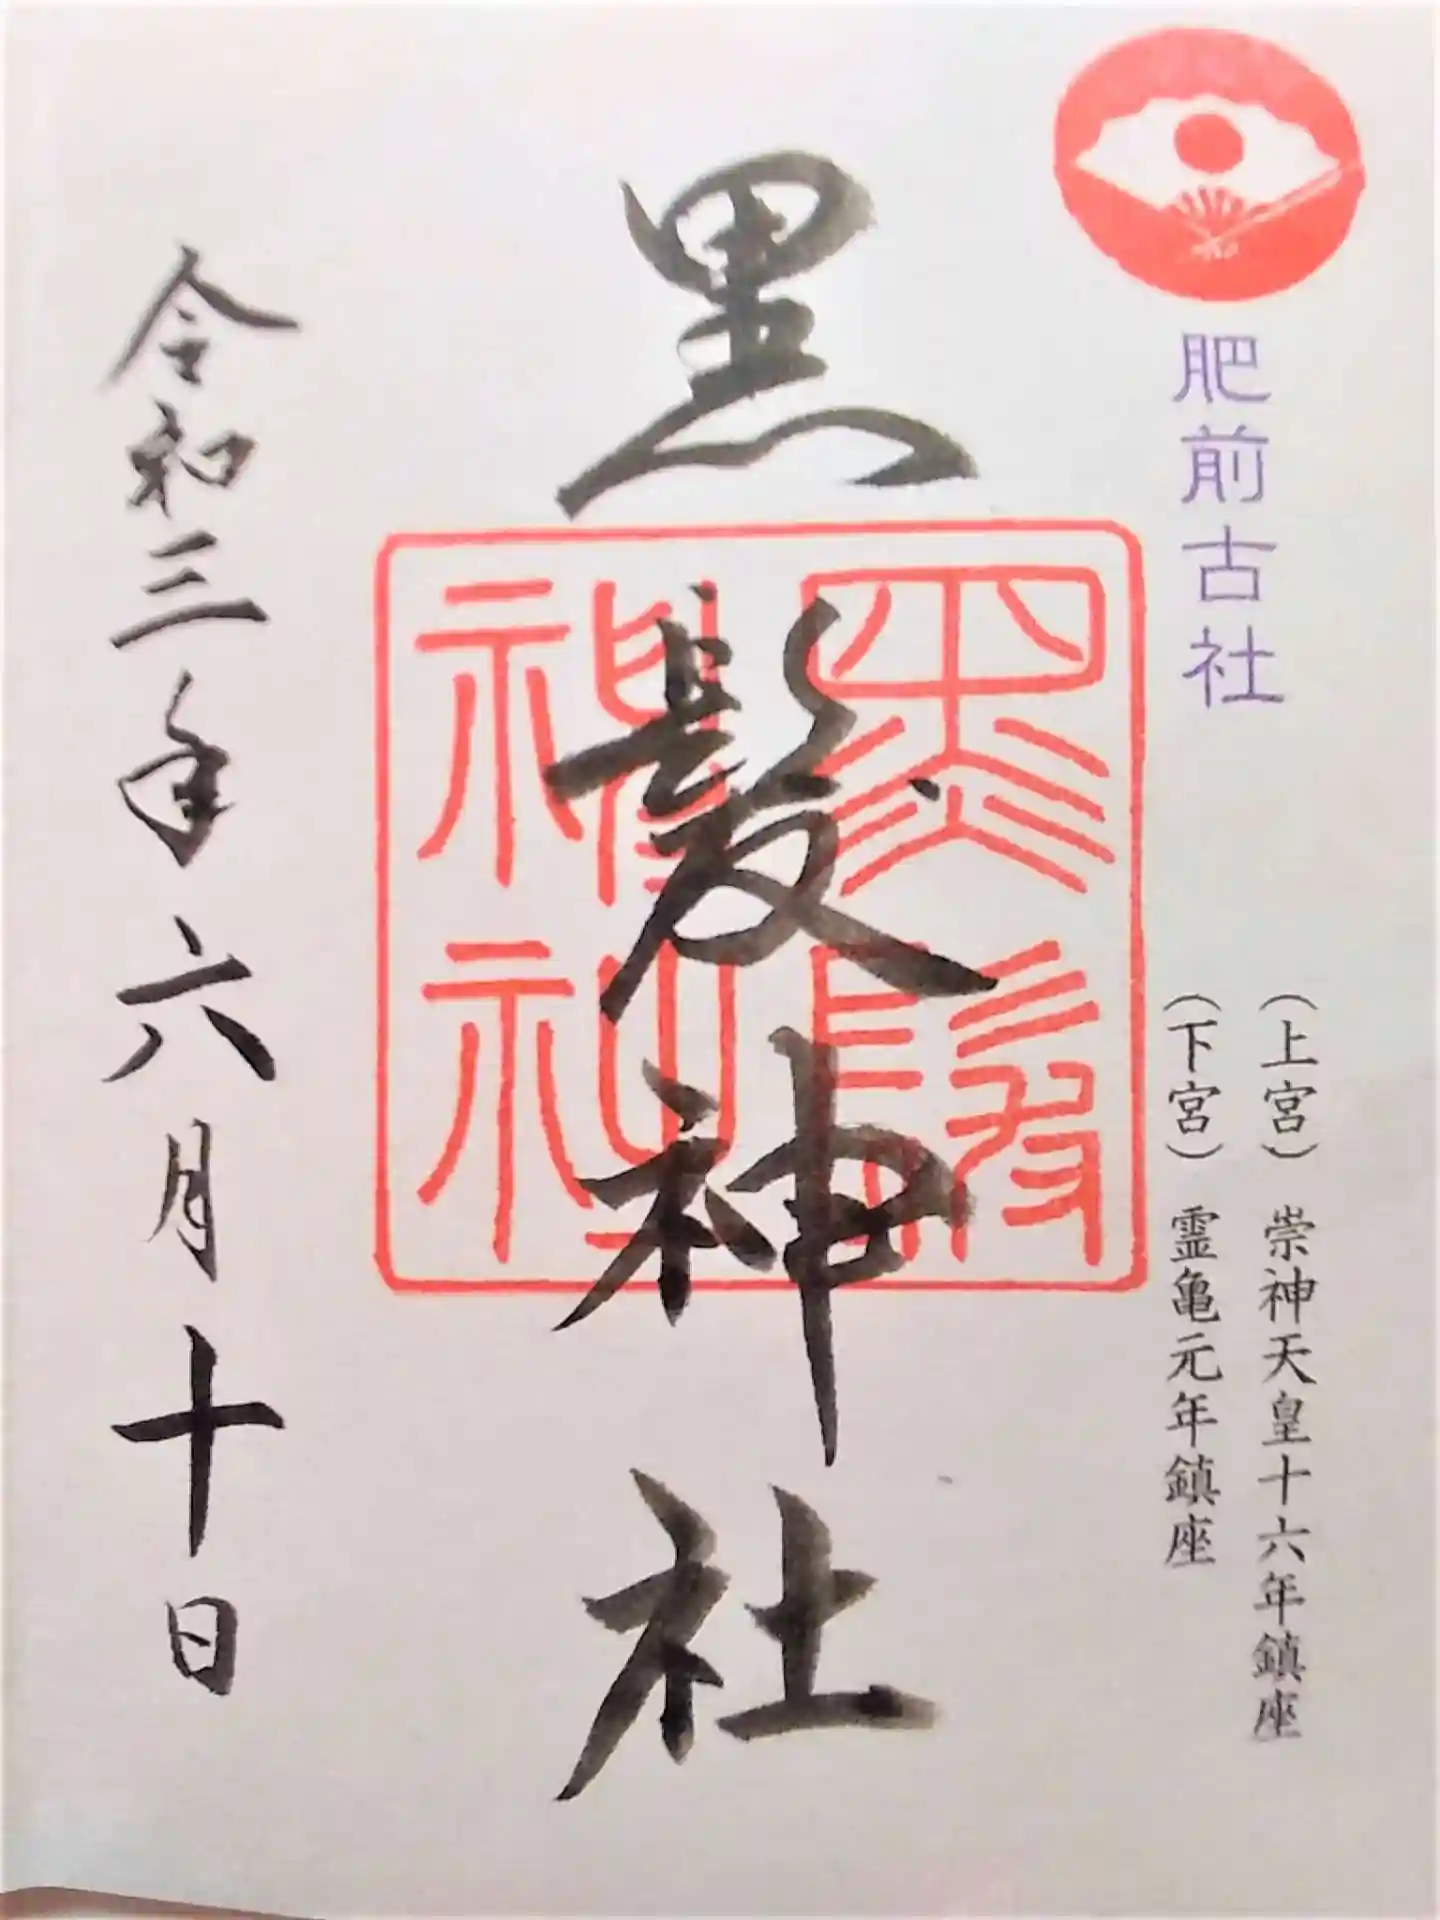 肥前古社
(上宮) 崇神天皇十六年鎮座
(下宮) 霊亀元年鎮座
黒髪神社
令和三年六月十日